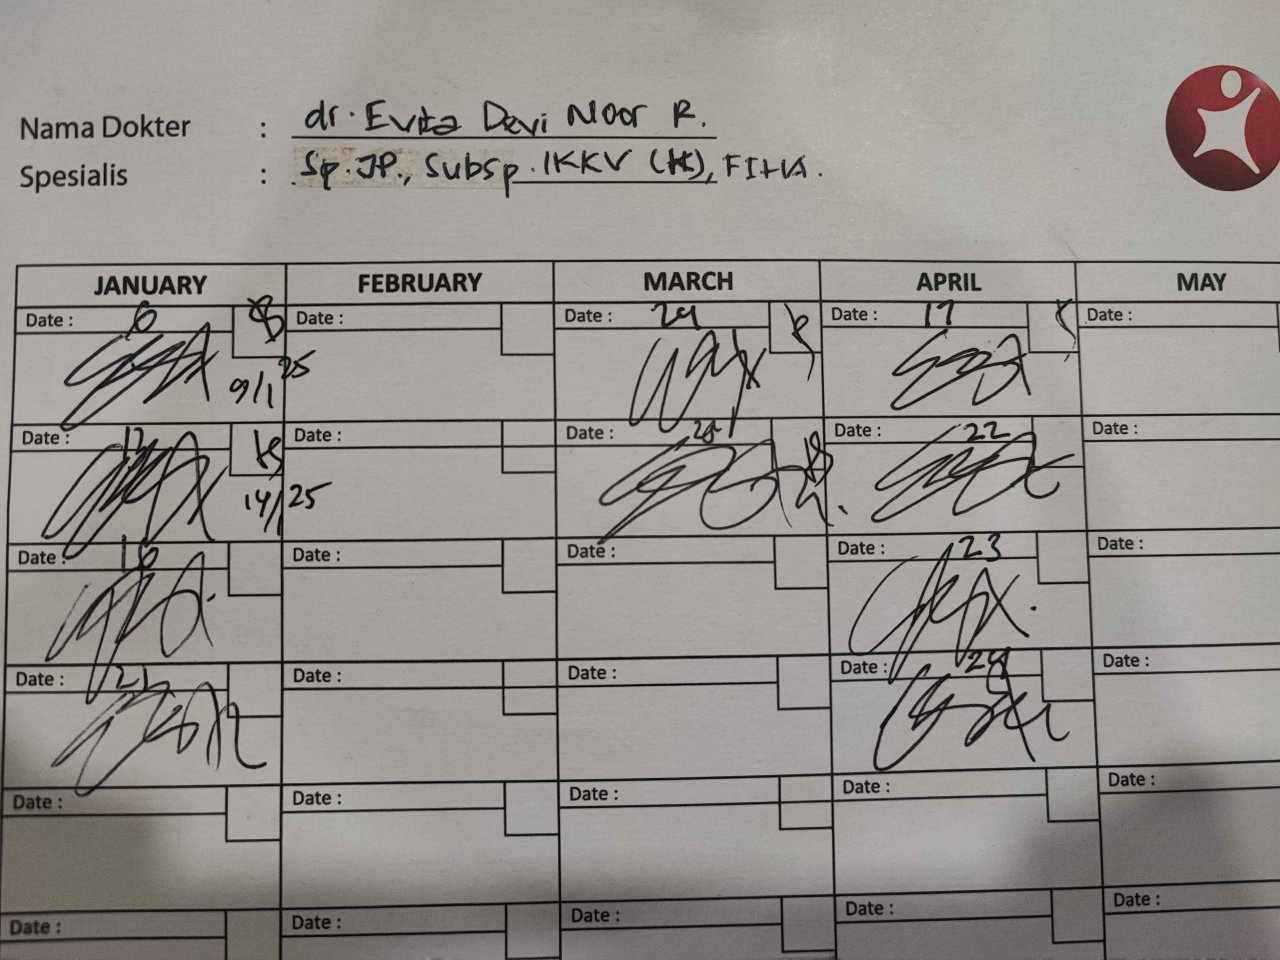 Nama Dokter : dr. Evita Devi Noor R.
Spesialis : Sp.JP., Subsp. IKKV (K), FIHA.
JANUARY FEBRUARY MARCH APRIL MAY
Date : 6 Date : Date : 24 Date : 17 Date :
9/1 25
Date : 13 Date : Date : Date : 22 Date :
14/1 25
Date : 16 Date : Date : Date : 23 Date :
Date : 21 Date : Date : Date : 24 Date :
Date : Date : Date : Date : Date :
Date : Date : Date : Date : Date :